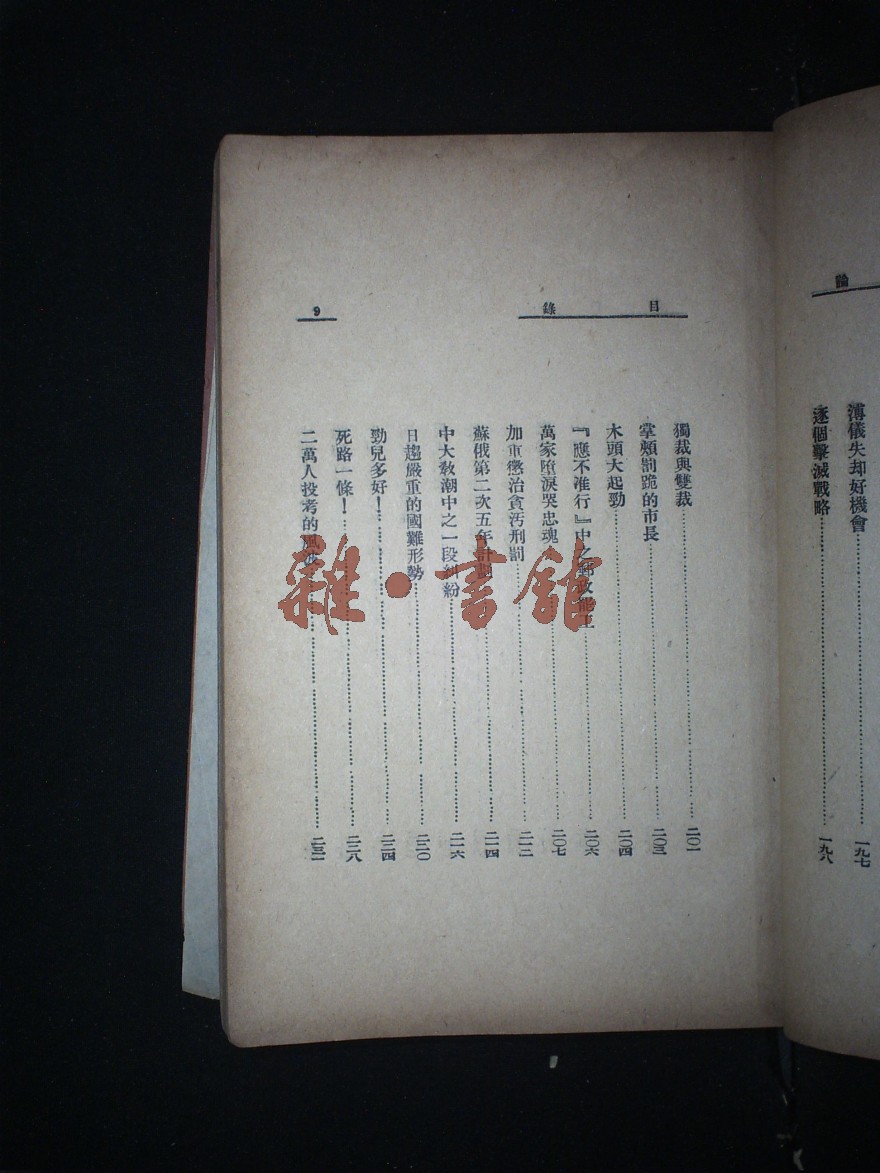 論
溥儀失却好機會……一九七
逐個擊滅戰略……一九八
目 錄
9
獨裁與雙裁……二〇一
掌頰罰跪的市長……二〇三
木頭大起勁……二〇四
『應不准行』中之郵政罷工……二〇六
萬家墮淚哭忠魂……二〇七
加重懲治貪汚刑罰……二一二
蘇俄第二次五年計劃……二一四
中大教潮中之一段糾紛……二一六
日趨嚴重的國難形勢……二二〇
勁兒多好！……二二四
死路一條！……二二八
二萬人投考的風波……二三一
雜·書館